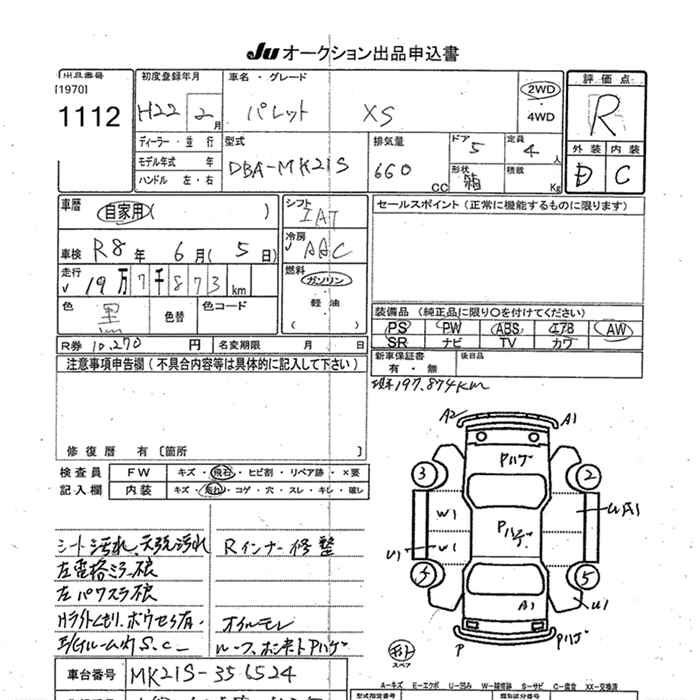 Ju オークション出品申込書
出品番号 初度登録年月 車名・グレード 評価点
[1970]
1112 H22 2月 パレット XS 2WD・4WD R
ディーラー・並行 型式 排気量 ドア 5 定員 4人 外装 内装
モデル年式 年 DBA-MK21S 660cc 形状 箱 積載 Kg D C
ハンドル 左・右
車歴 自家用( ) シフト IAT セールスポイント(正常に機能するものに限ります)
車検 R8年 6月(5日) 冷房 AAC
走行 19万7千873km 燃料 ガソリン
軽油
( )
色 黒 色替 色コード
装備品(純正品に限り〇を付けてください)
PS PW ABS エアB AW
SR ナビ TV カワ
R券 10,270円 名変期限 月 日
新車保証書 後日品
有・無
注意事項申告欄(不具合内容等は具体的に記入して下さい)
現車197,874km
修復歴 有〔箇所 〕
検査員 FW キズ・飛石・ヒビ割・リペア跡・×要
記入欄 内装 キズ・汚れ・コゲ・穴・スレ・キレ・破レ
A2 A1
Pハゲ
3 2
W1 Pハゲ
U1 W1
5
A1 U1
P Pハゲ
スペア
シート汚れ、天張汚れ Rインナー修整
左電格ミラー不良
左パワスラ不良
Hライトくもり、ボウセイ有、オイルモレ
E/Gルーム内S、C ルーフ、ボンネットPハゲ
車台番号 MK21S-356524
A−キズ E−エクボ U−凹み W−補修跡 S−サビ C−腐食 XX−交換済
型式指定番号 類別区分番号